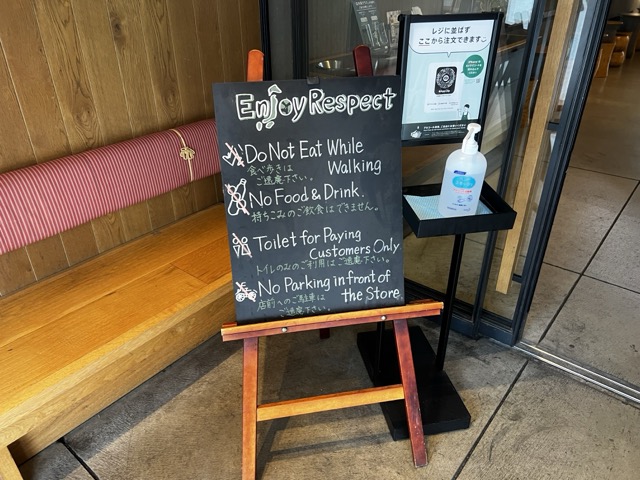 Enjoy Respect
Do Not Eat While
Walking
食べ歩きは
ご遠慮下さい。
No Food & Drink.
持ちこみのご飲食はできません。
Toilet for Paying
Customers Only
トイレのみのご利用はご遠慮下さい。
No Parking in front of
the Store
店前へのご駐車は
ご遠慮下さい。
レジに並ばず
ここから注文できます